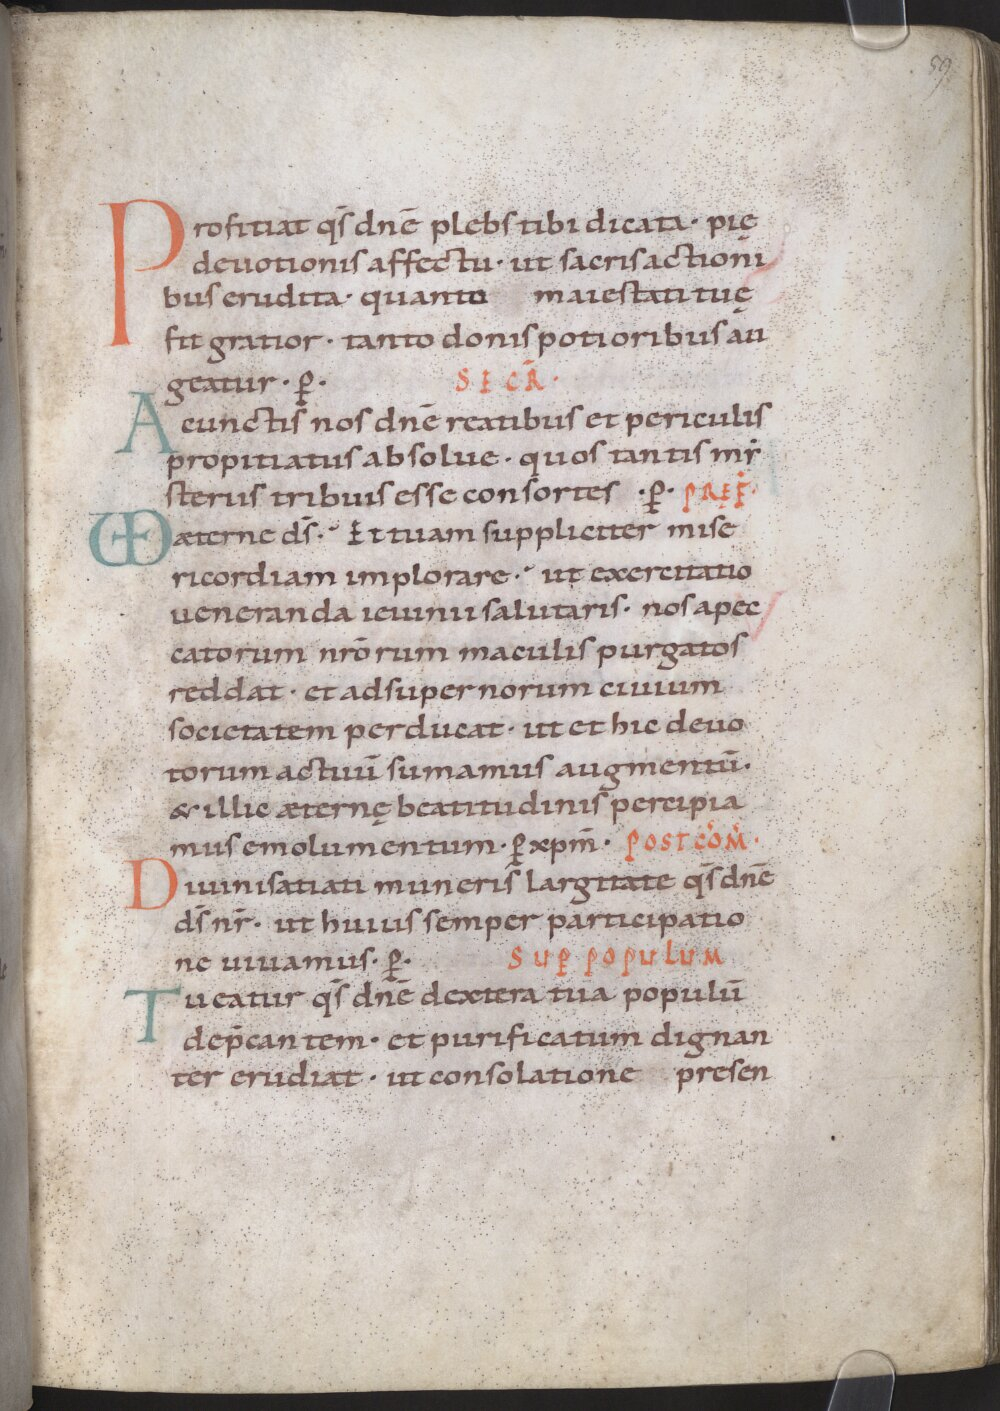 59
Profitiat qs̄ dnē plebs tibi dicata· pię
deuotionis affectu· ut sacris actioni
bus erudita· quanto maiestati tuę
fit gratior· tanto donis potioribus au
geatur· ꝑ· SECR̄·
A cunctis nos dnē reatibus et periculis
propitiatus absolue· quos tanti mi
sterii tribuis esse consortes ·ꝑ· PREF̄·
VD aeterne ds̄· Et tuam suppliciter mise
ricordiam implorare· ut exercitatio
ueneranda ieiunii salutaris· nos a pec
catorum nrōrum maculis purgatos
reddat· et ad supernorum ciuium
societatem perducat· ut et hic deuo
torum actuū sumamus augmentū·
& illic æternę beatitudinis percipia
mus emolumentum· ꝑ xpm̄· POST COM̄·
Diuini satiati muneris largitate qs̄ dnē
ds̄ nr̄· ut huius semper participatio
ne uiuamus· ꝑ· SUꝑ POPULUM
Tueatur qs̄ dnē dextera tua populū
dep̄cantem· et purificatum dignan
ter erudiat· ut consolatione presen